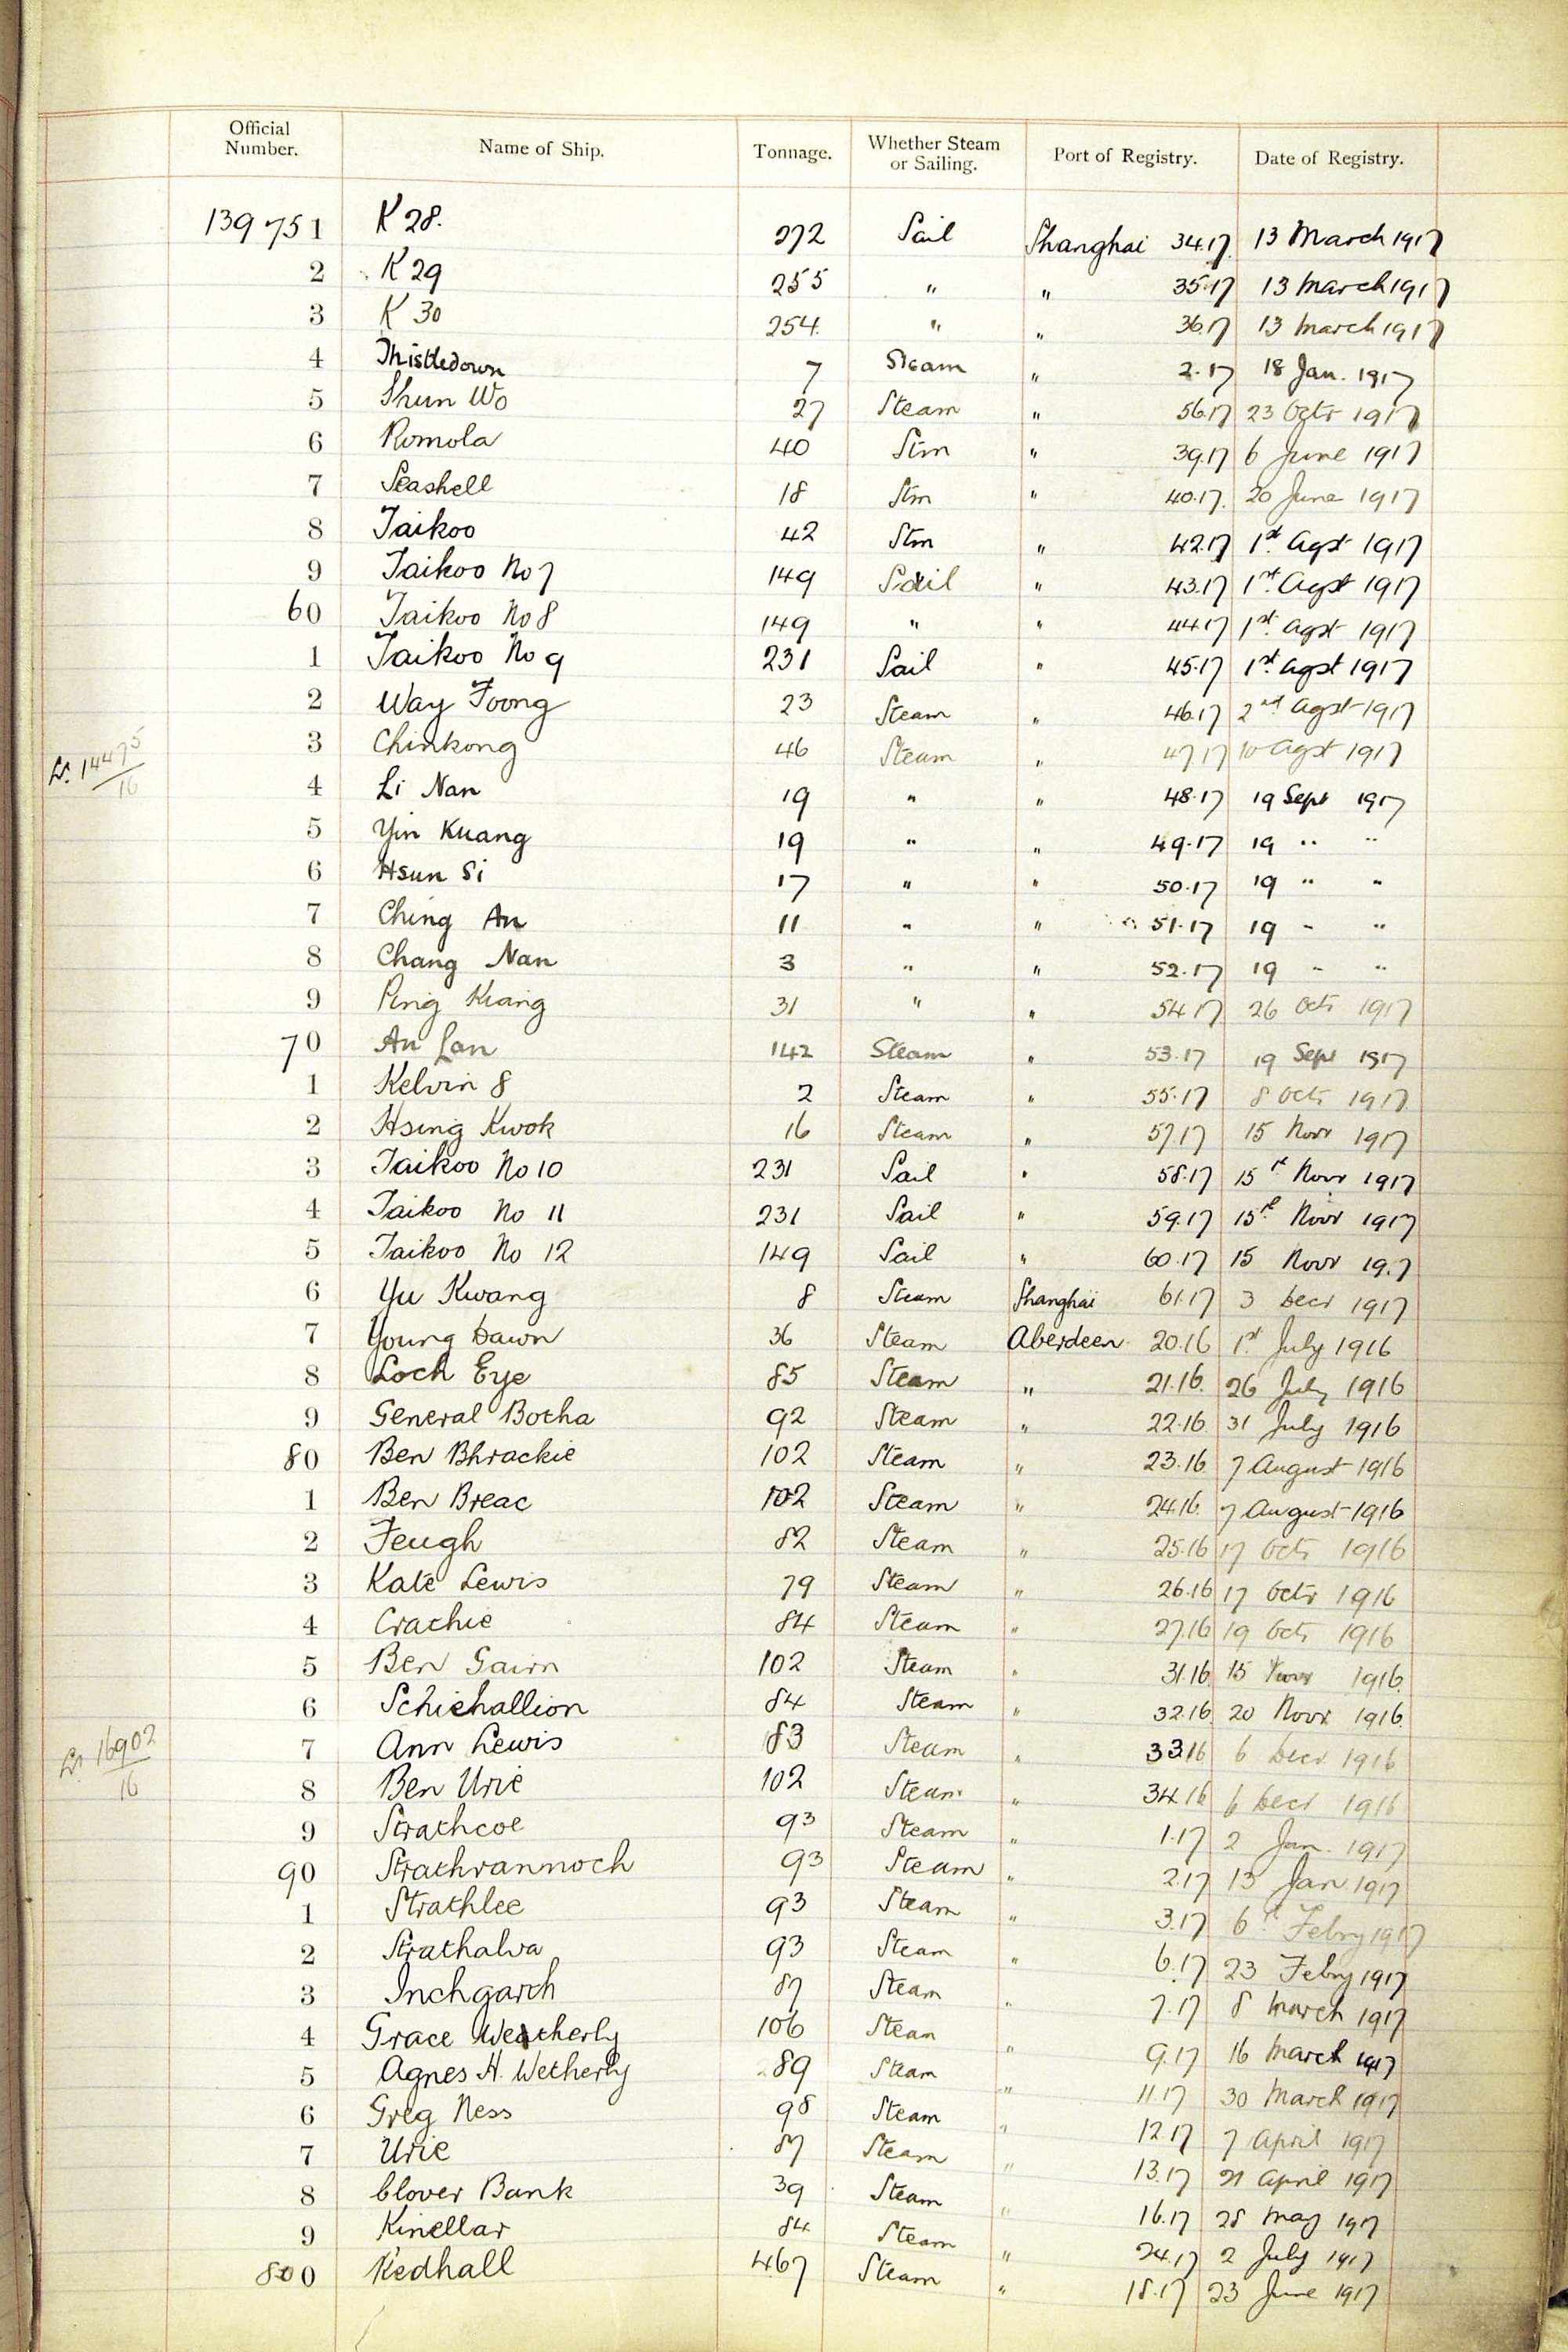 Official Number. Name of Ship. Tonnage. Whether Steam or Sailing. Port of Registry. Date of Registry.
139751 K 28. 272 Sail Shanghai 34.17 13 March 1917
2 K 29 255 " " 35.17 13 March 1917
3 K 30 254 " " 36.17 13 March 1917
4 Thistledown 7 Steam " 2.17 18 Jan. 1917
5 Shun Wo 27 Steam " 56.17 23 Octr 1917
6 Romola 40 Stm " 39.17 6 June 1917
7 Seashell 18 Stm " 40.17. 20 June 1917
8 Taikoo 42 Stm " 42.17 1st Agst 1917
9 Taikoo No 7 149 Sail " 43.17 1st Agst 1917
60 Taikoo No 8 149 " " 44.17 1st Agst 1917
1 Taikoo No 9 231 Sail " 45.17 1st Agst 1917
2 Way Foong 23 Steam " 46.17 2nd Agst 1917
3 Chinkong 46 Steam " 47.17 10 Agst 1917
Lr. 14475/16
4 Li Nan 19 " " 48.17 19 Sept 1917
5 Yin Kuang 19 " " 49.17 19 " "
6 Hsun Si 17 " " 50.17 19 " "
7 Ching An 11 " " 51.17 19 " "
8 Chang Nan 3 " " 52.17 19 " "
9 Ping Kiang 31 " " 54.17 26 Octr 1917
70 An Lan 142 Steam " 53.17 19 Sept 1917
1 Kelvin 8 2 Steam " 55.17 8 Octr 1917
2 Hsing Kwok 16 Steam " 57.17 15 Novr 1917
3 Taikoo No 10 231 Sail " 58.17 15th Novr 1917
4 Taikoo No 11 231 Sail " 59.17 15th Novr 1917
5 Taikoo No 12 149 Sail " 60.17 15 Novr 1917
6 Yu Kwang 8 Steam Shanghai 61.17 3 Decr 1917
7 Young Dawn 36 Steam Aberdeen 20.16 1st July 1916
8 Loch Eye 85 Steam " 21.16. 26 July 1916
9 General Botha 92 Steam " 22.16. 31 July 1916
80 Ben Bhrackie 102 Steam " 23.16 7 August 1916
1 Ben Breac 102 Steam " 24.16. 7 August 1916
2 Feugh 82 Steam " 25.16 17 Octr 1916
3 Kate Lewis 79 Steam " 26.16 17 Octr 1916
4 Crathie 84 Steam " 27.16 19 Octr 1916
5 Ben Gairn 102 Steam " 31.16 15 Novr 1916.
6 Schiehallion 84 Steam " 32.16. 20 Novr 1916.
7 Ann Lewis 83 Steam " 33.16 6 Decr 1916
Lr. 16902/16
8 Ben Urie 102 Steam " 34.16 6 Decr 1916
9 Strathcoe 93 Steam " 1.17 2 Jan. 1917
90 Strathrannoch 93 Steam " 2.17 13 Jan 1917
1 Strathlee 93 Steam " 3.17 6th Febry 1917
2 Strathalva 93 Steam " 6.17 23 Febry 1917
3 Inchgarth 87 Steam " 7.17 8 March 1917
4 Grace Weatherly 106 Steam " 9.17 16 March 1917
5 Agnes H. Wetherly 89 Steam " 11.17 30 March 1917
6 Greg Ness 98 Steam " 12.17 7 April 1917
7 Urie 87 Steam " 13.17 21 April 1917
8 Clover Bank 39 Steam " 16.17 28 May 1917
9 Kinellar 84 Steam " 24.17 2 July 1917
800 Redhall 467 Steam " 18.17 23 June 1917